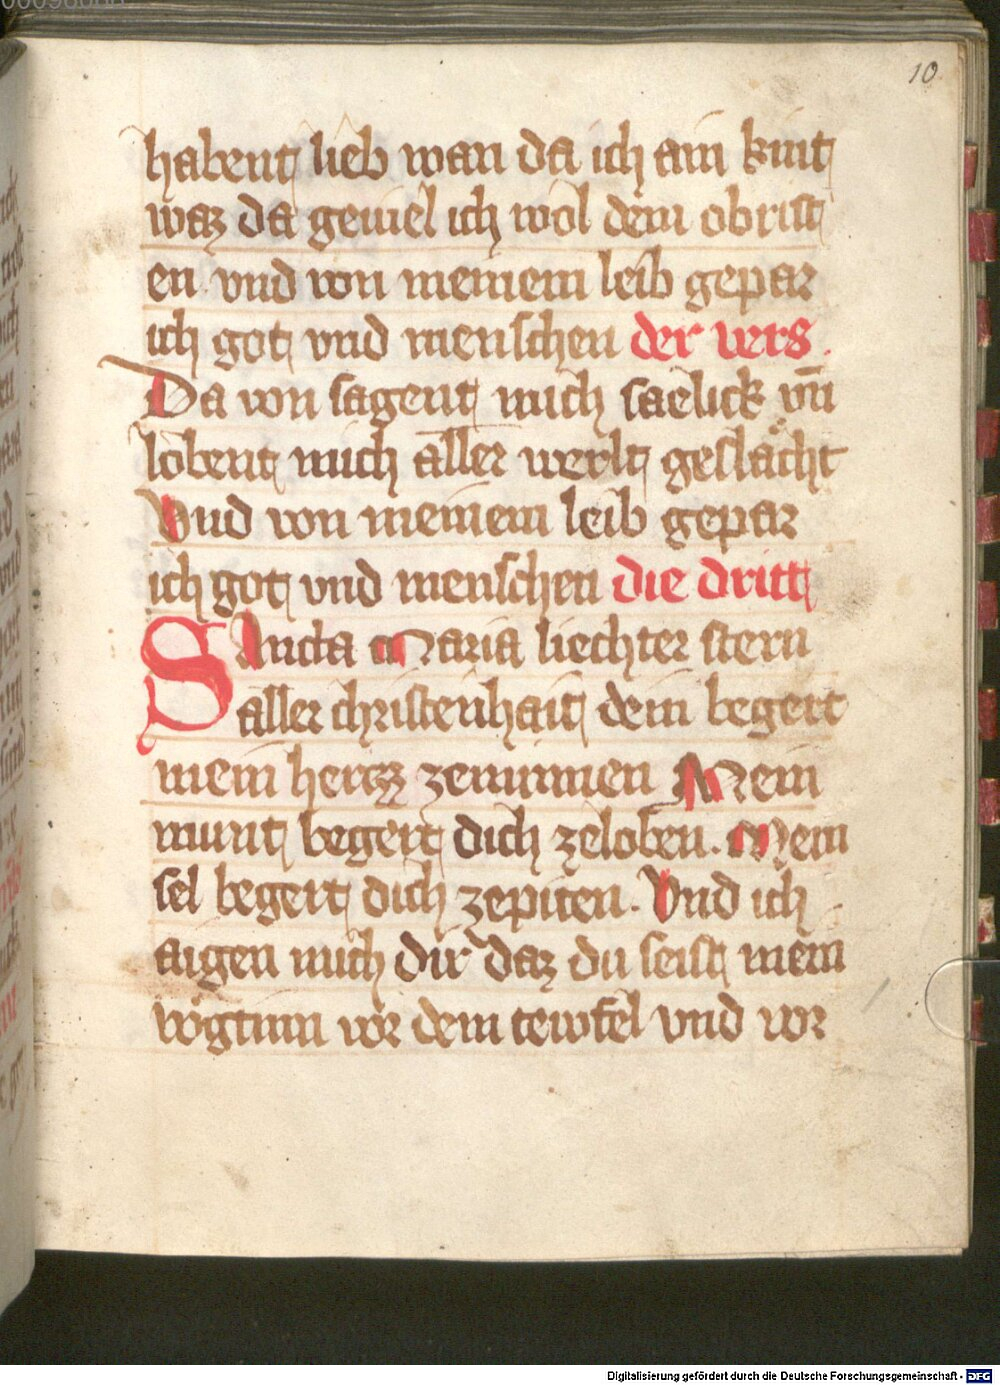 10
habent lieb wan da ich ain kint
waz da geuiel ich wol dem obrist
en vnd von meinem leib gepar
ich got vnd menschen der vers.
Da von sagent mich saelick vn̄
lobent mich aller werlt geslaͤcht
Vnd von meinem leib gepar
ich got vnd menschen die dritt
SAncta Maria liechter stern
aller christenhait dein begert
mein hertz zeminnen Mein
munt begert dich zeloben. Mein
sel begert dich zepiten. Vnd ich
aigen mich dir daz du seist mein
vogtinn vor dem tewfel vnd vor
Digitalisierung gefördert durch die Deutsche Forschungsgemeinschaft - DFG